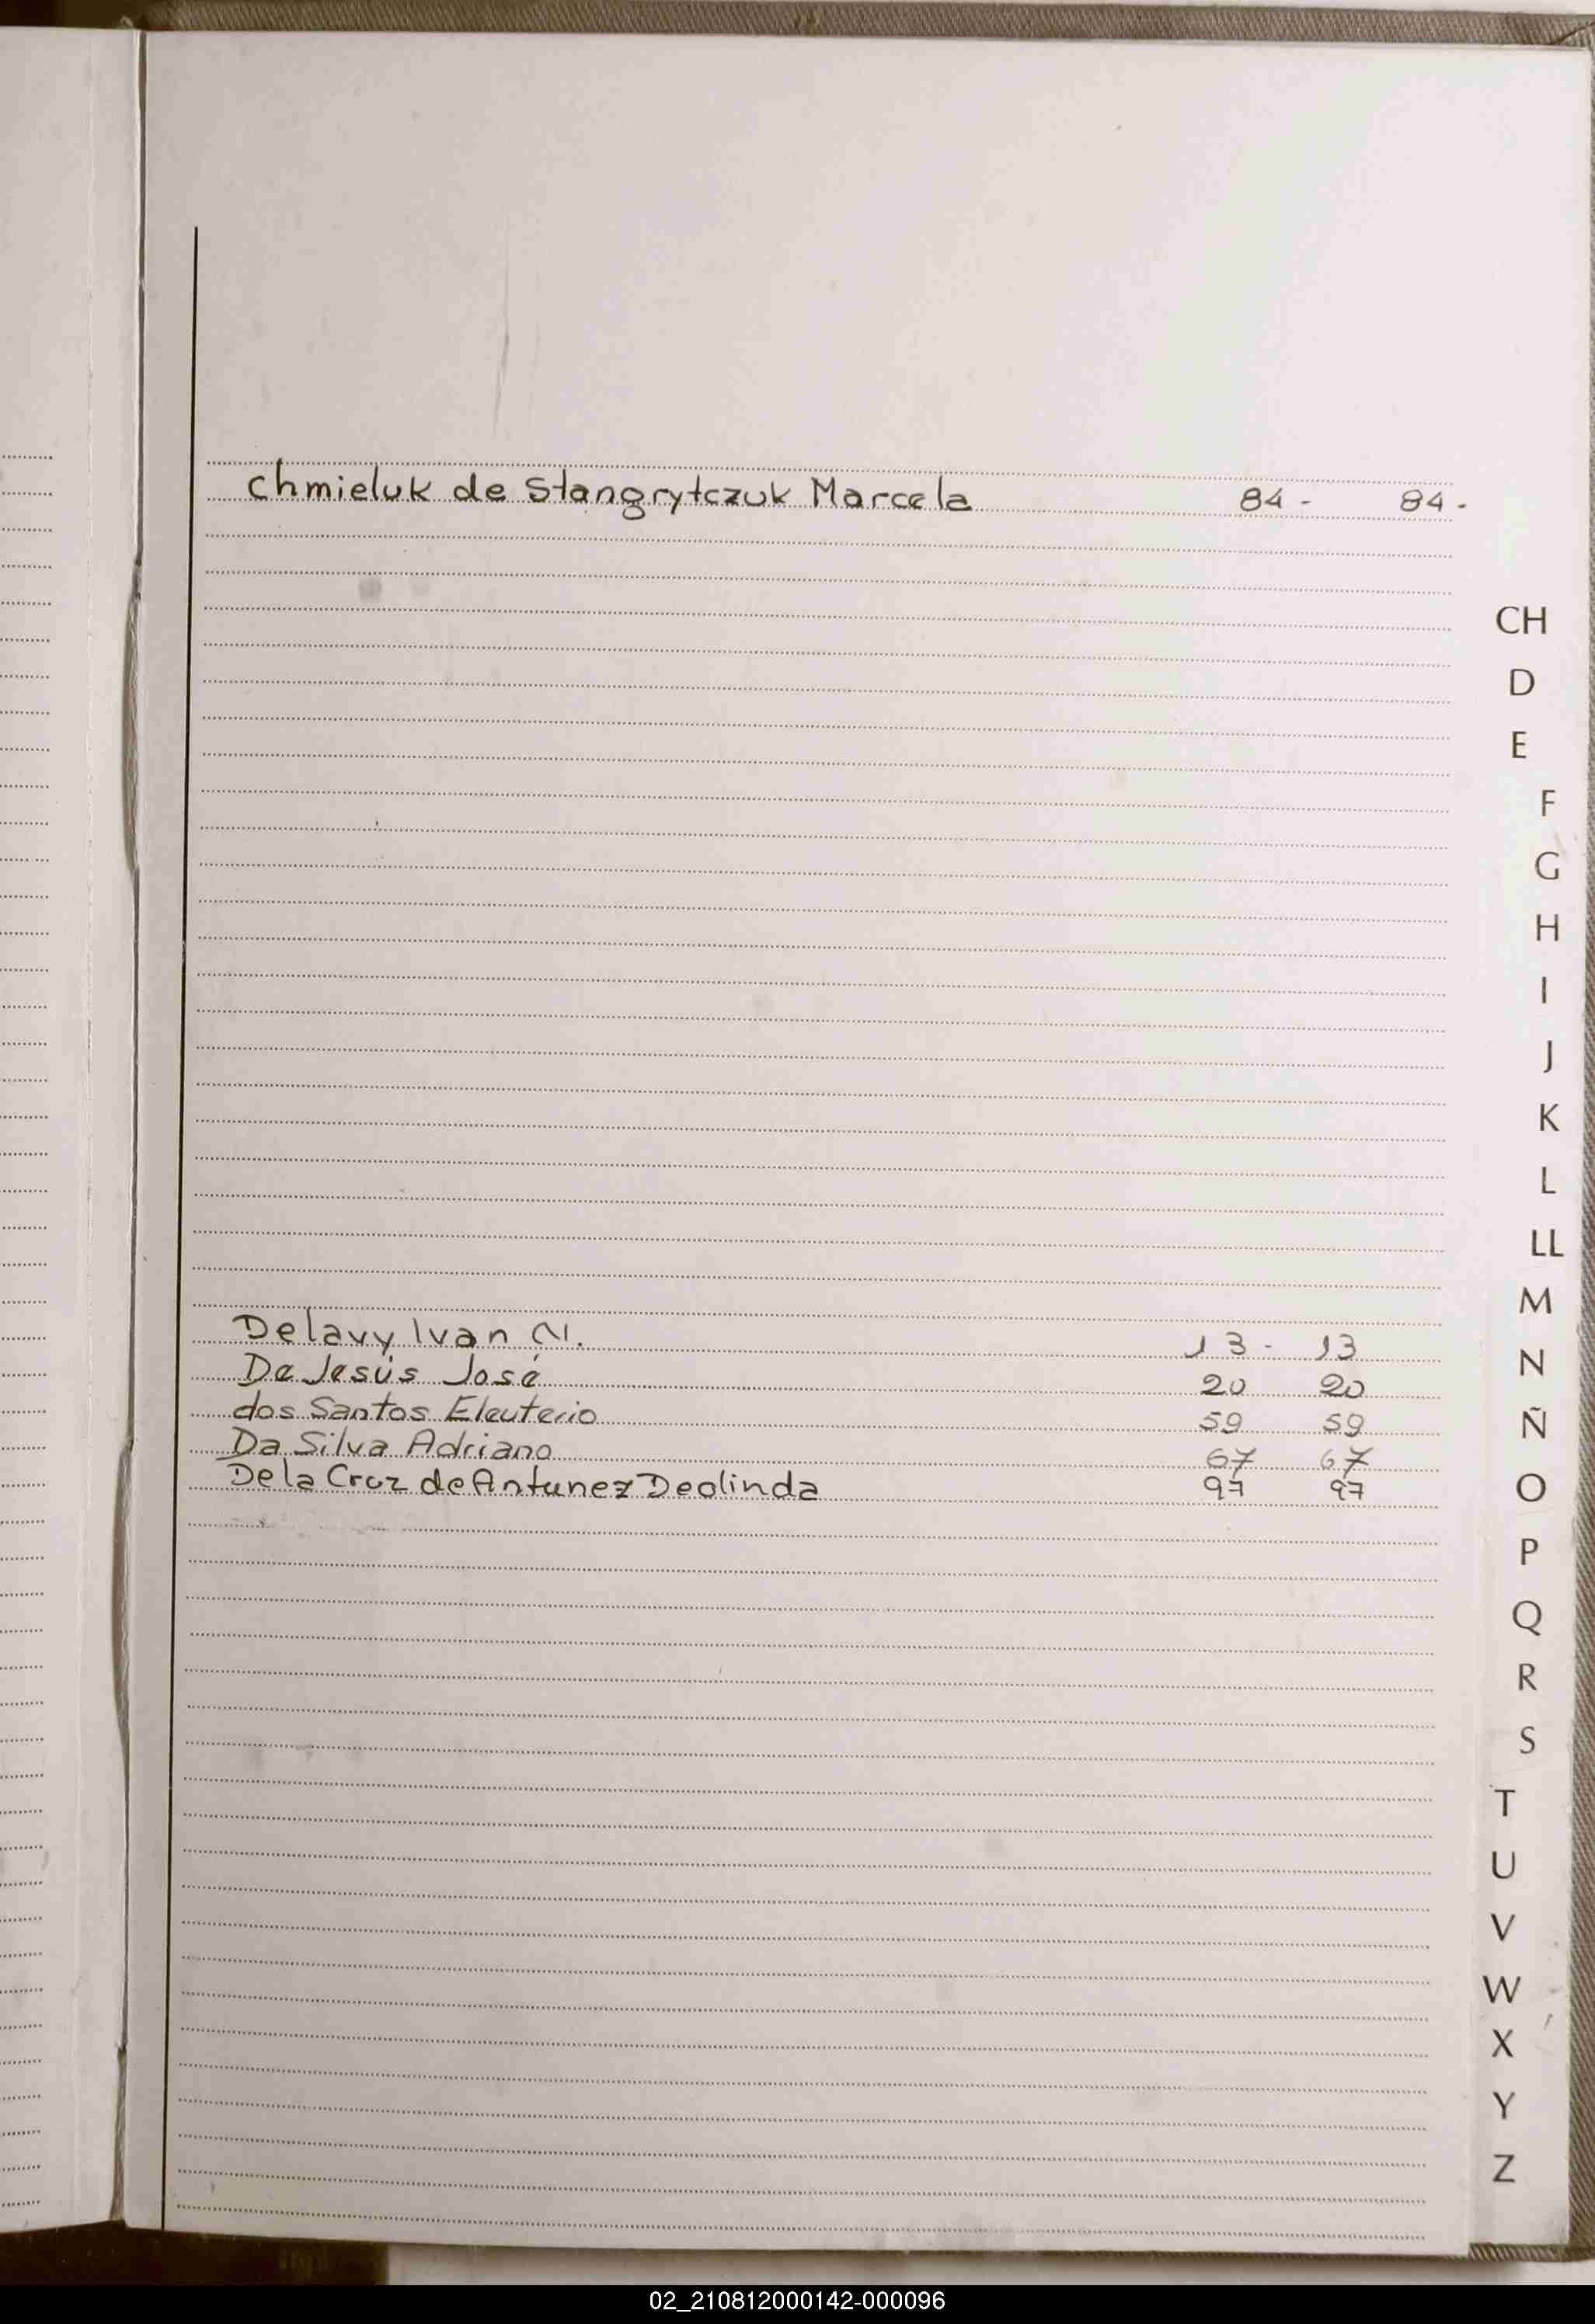 Chmieluk de Stangrytczuk Marcela 84 - 84 -
CH
D
E
F
G
H
I
J
K
L
LL
Delavy Ivan N. 13 - 13
De Jesús José 20 20
dos Santos Eleuterio 59 59
Da Silva Adriano 67 67
De la Cruz de Antunez Deolinda 97 97
M
N
Ñ
O
P
Q
R
S
T
U
V
W
X
Y
Z
02_210812000142-000096